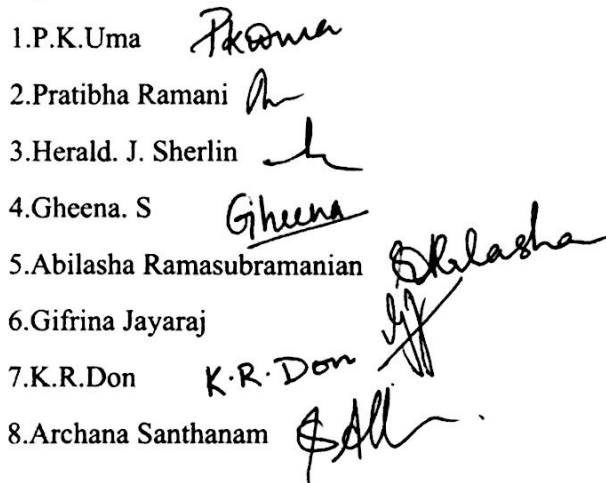 1.P.K.Uma PKUma
2.Pratibha Ramani
3.Herald. J. Sherlin
4.Gheena. S Gheena
5.Abilasha Ramasubramanian Abilasha
6.Gifrina Jayaraj
7.K.R.Don K.R.Don
8.Archana Santhanam